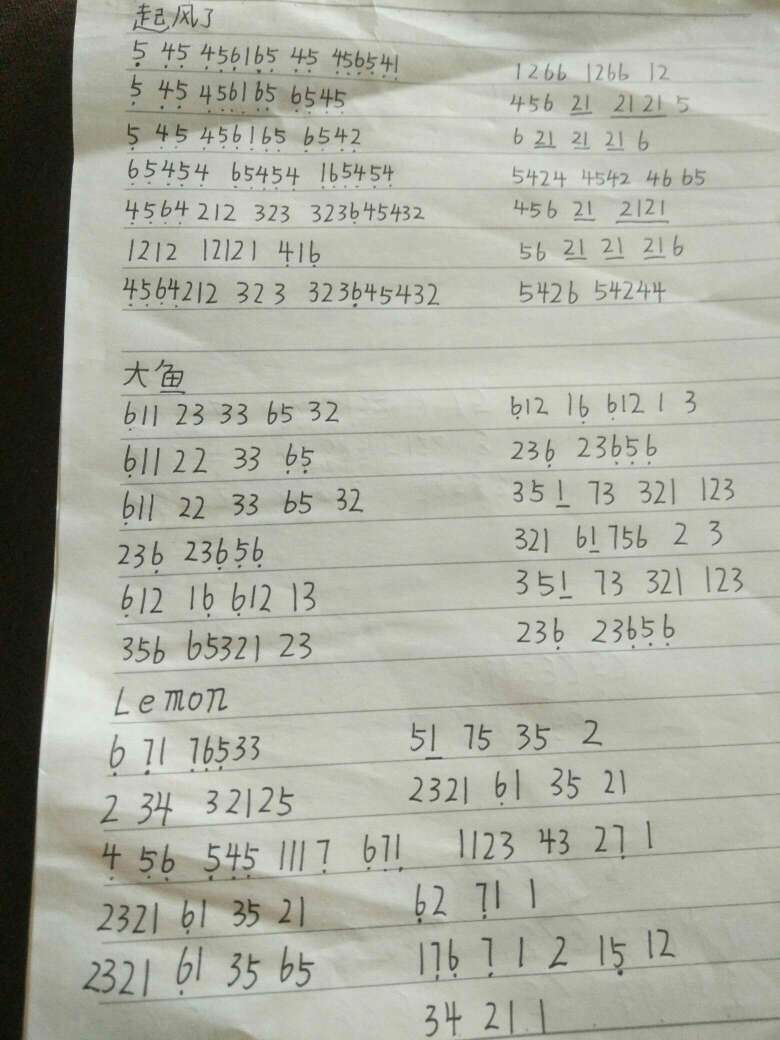 起风了
5 45 456165 45 456541
5 45 456165 6545
5 45 456165 6542
65454 65454 165454
4564 212 323 323645432
1212 12121 416
4564212 323 323645432
1266 1266 12
456 21 2121 5
6 21 21 21 6
5424 4542 46 65
456 21 2121
56 21 21 21 6
5426 54244
大鱼
611 23 33 65 32
611 22 33 65
611 22 33 65 32
236 23656
612 16 612 13
356 65321 23
612 16 612 1 3
236 23656
351 73 321 123
321 61756 2 3
351 73 321 123
236 23656
Lemon
6 71 76533
2 34 32125
4 56 545 1117 671
2321 61 35 21
2321 61 35 65
51 75 35 2
2321 61 35 21
1123 43 27 1
62 71 1
176 7 1 2 15 12
34 21 1